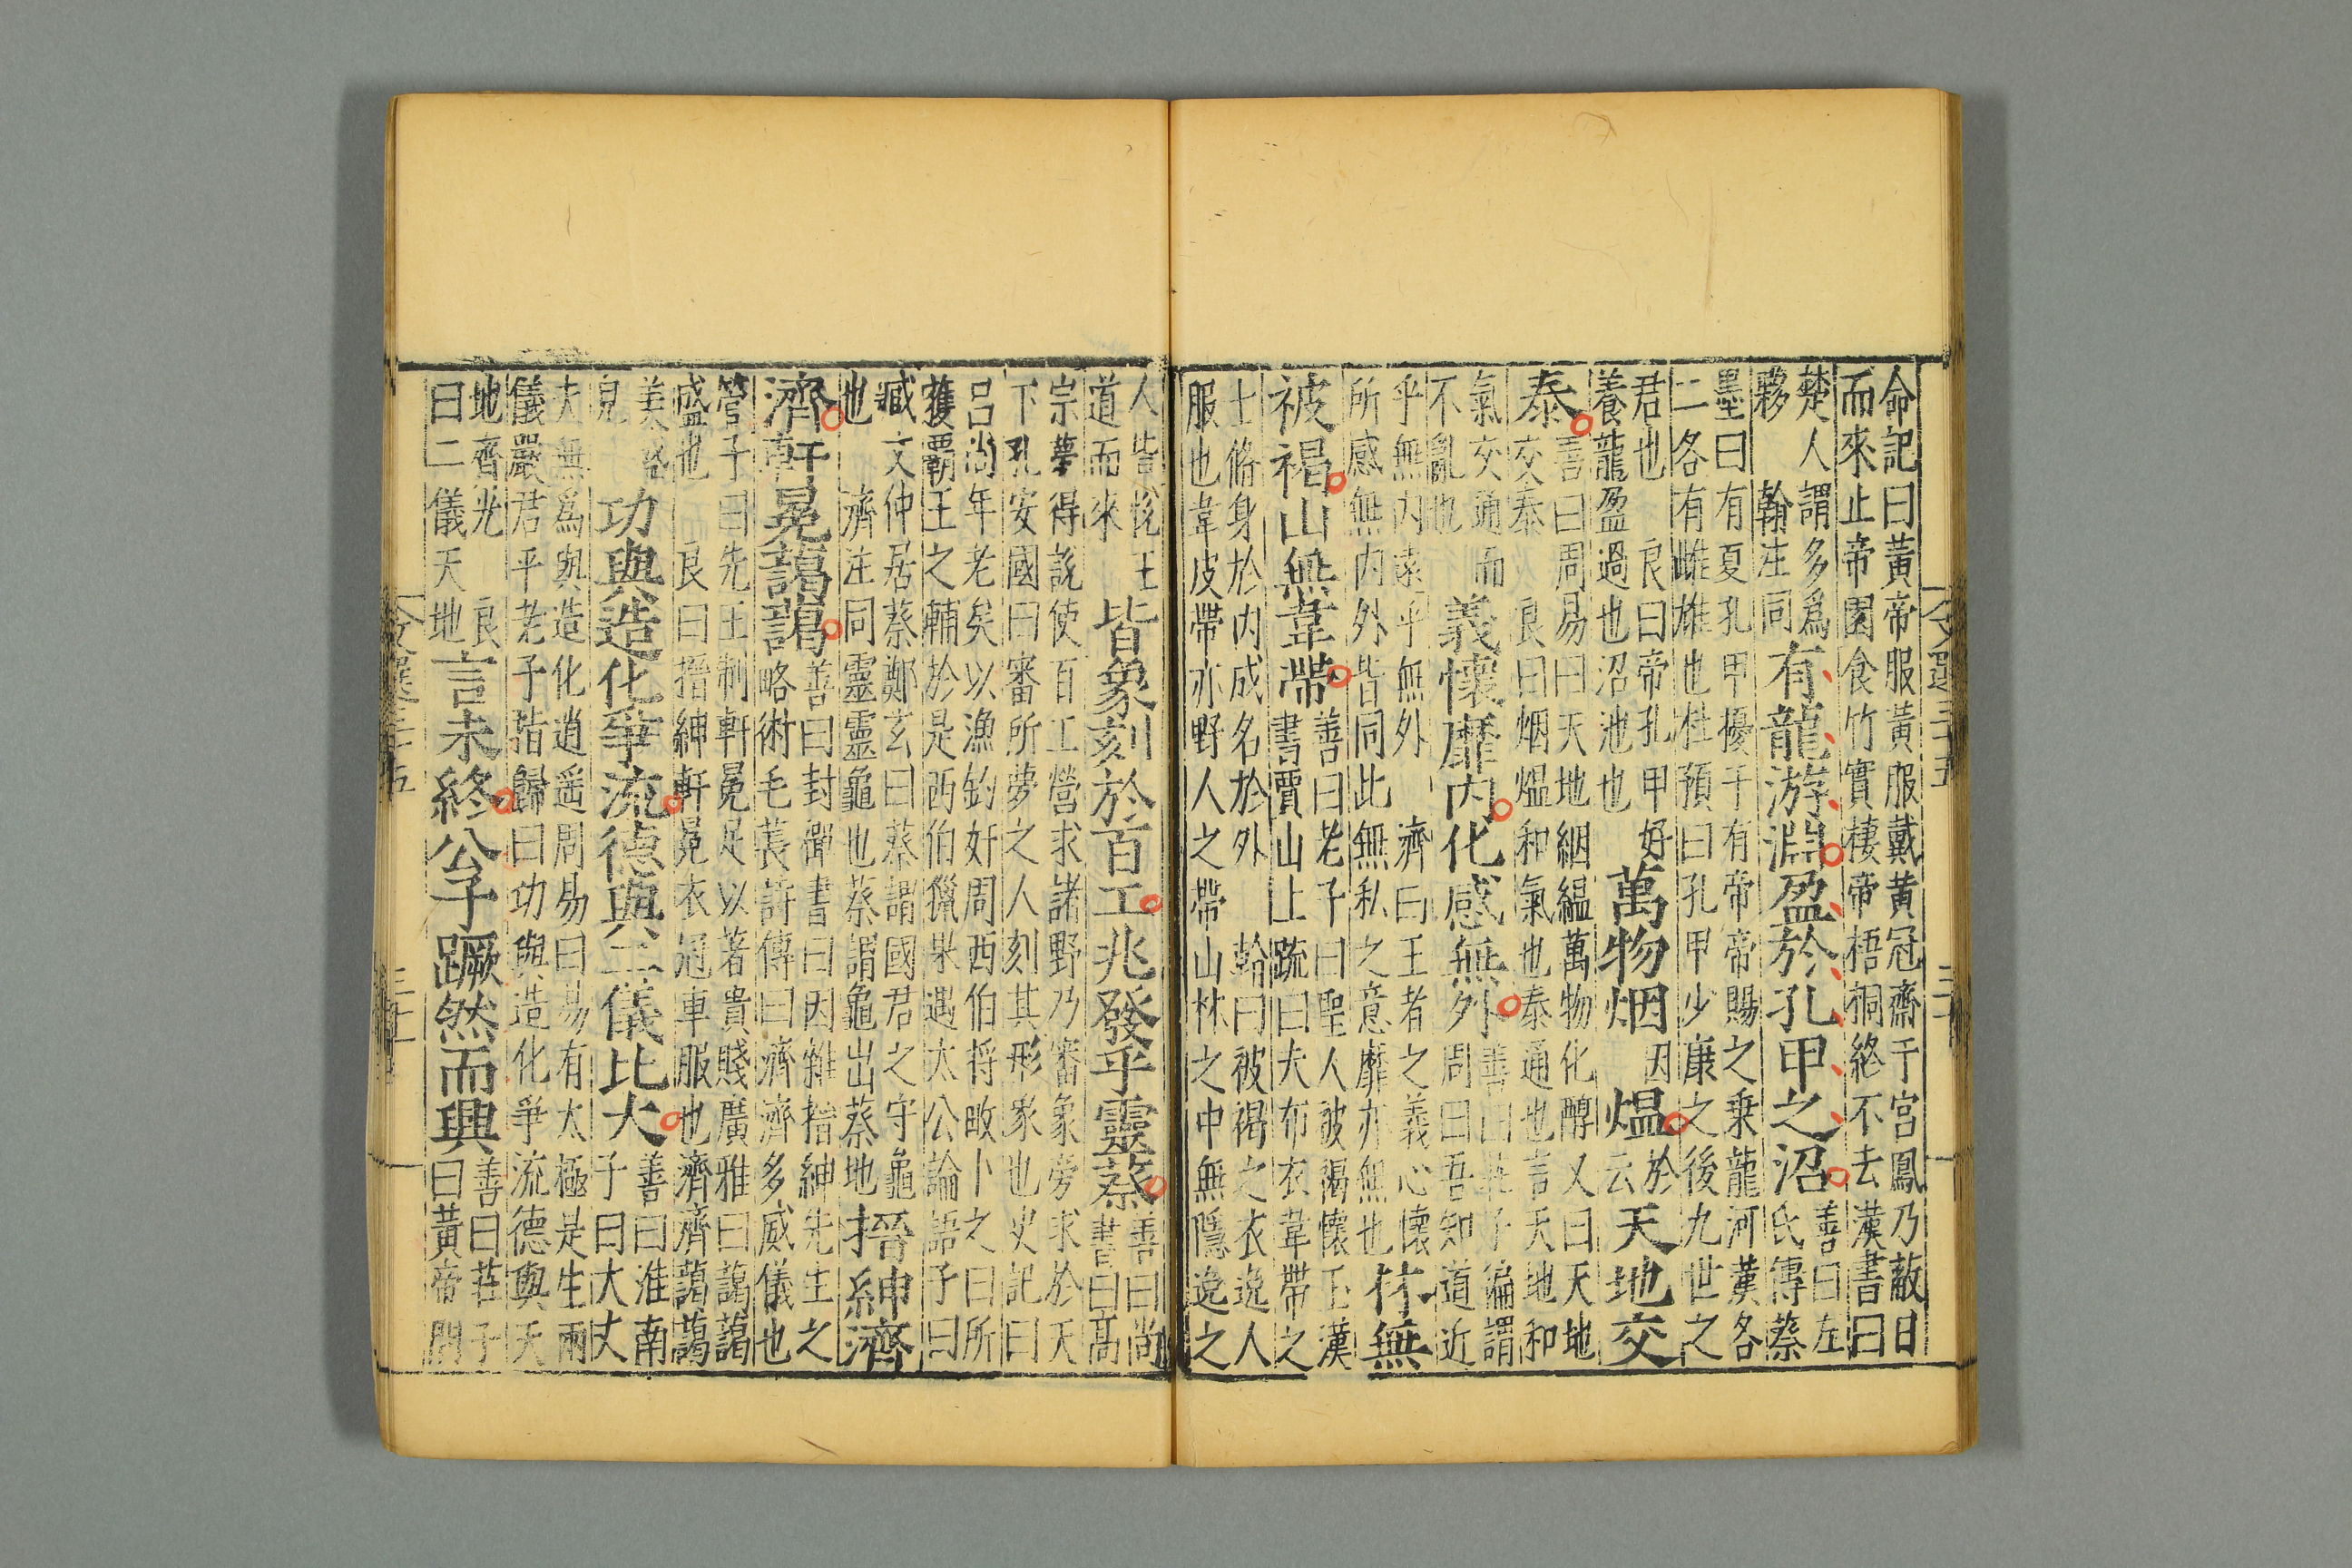 命記曰黃帝服黃服戴黃冠齋于宮鳳乃蔽日
而來止帝園食竹實棲帝梧桐終不去漢書曰
楚人謂多爲
夥 翰注同
有龍游淵盈於孔甲之沼
善曰左
氏傳蔡
墨曰有夏孔甲擾于有帝帝賜之乗龍河漢各
二各有雌雄也杜預曰孔甲少康之後九世之
君也 良曰帝孔甲好
養龍盈過也沼池也
萬物烟因熅
於
云
天地交
泰
善曰周易曰天地絪縕萬物化醇又曰天地
交泰 良曰烟熅和氣也泰通也言天地和
氣交通而
不亂也
義懷靡内化感無外
善曰莊子徧謂
周曰吾知道近
乎無内遠乎無外 濟曰王者之義心懷
所感無内外皆同此無私之意靡亦無也
林無
被褐山無韋帶
善曰老子曰聖人被褐懷玉漢
書賈山上疏曰夫布衣韋帶之
士脩身於内成名於外 翰曰被褐之衣逸人
服也韋皮帶亦野人之帶山林之中無隱逸之
人皆悅王
道而來
皆象刻於百工兆發乎靈蔡
善曰尚
書曰高
宗夢得說使百工營求諸野乃審象旁求於天
下孔安國曰審所夢之人刻其形象也史記曰
吕尚年老矣以漁釣奸周西伯將畋卜之曰所
獲霸王之輔於是西伯獵果遇太公論語子曰
臧文仲居蔡鄭玄曰蔡謂國君之守龜
也 濟注同靈靈龜也蔡謂龜出蔡地
搢紳濟
濟軒冕藹藹
善曰封禪書曰因雜搢紳先生之
略術毛萇詩傳曰濟濟多威儀也
管子曰先王制軒冕足以著貴賤廣雅曰藹藹
盛也 良曰搢紳軒冕衣冠車服也濟濟藹藹
美
皃
功與造化爭流德與二儀比大
善曰淮南
子曰大丈
夫無爲與造化逍遥周易曰易有太極是生兩
儀嚴君平老子指歸曰功與造化爭流德與天
地齊光 良
曰二儀天地
言未終公子蹶然而興
善曰莊子
曰黃帝聞